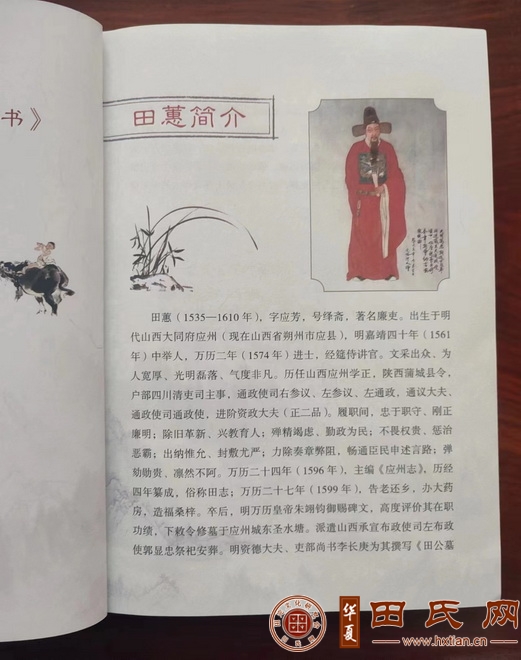 书》
田蕙简介
田蕙（1535—1610年），字应芳，号绎斋，著名廉吏。出生于明
代山西大同府应州（现在山西省朔州市应县），明嘉靖四十年（1561
年）中举人，万历二年（1574年）进士，经筵侍讲官。文采出众、为
人宽厚、光明磊落、气度非凡。历任山西应州学正，陕西蒲城县令，
户部四川清吏司主事，通政使司右参议、左参议、左通政，通议大夫、
通政使司通政使，进阶资政大夫（正二品）。履职间，忠于职守、刚正
廉明；除旧革新、兴教育人；殚精竭虑。勤政为民；不畏权贵、惩治
恶霸；出纳惟允、封敷尤严；力除奏章弊阻，畅通臣民申述言路；弹
劾勋贵、凛然不阿。万历二十四年（1596年），主编《应州志》，历经
四年纂成，俗称田志；万历二十七年（1599年），告老还乡，办大药
房，造福桑梓。卒后，明万历皇帝朱翊钧御赐碑文，高度评价其在职
功绩，下敕令修墓于应州城东圣水塘。派遣山西承宣布政使司左布政
使郭显忠祭祀安葬。明资德大夫、吏部尚书李长庚为其撰写《田公墓
华夏
田氏网
www.hxtian.cn